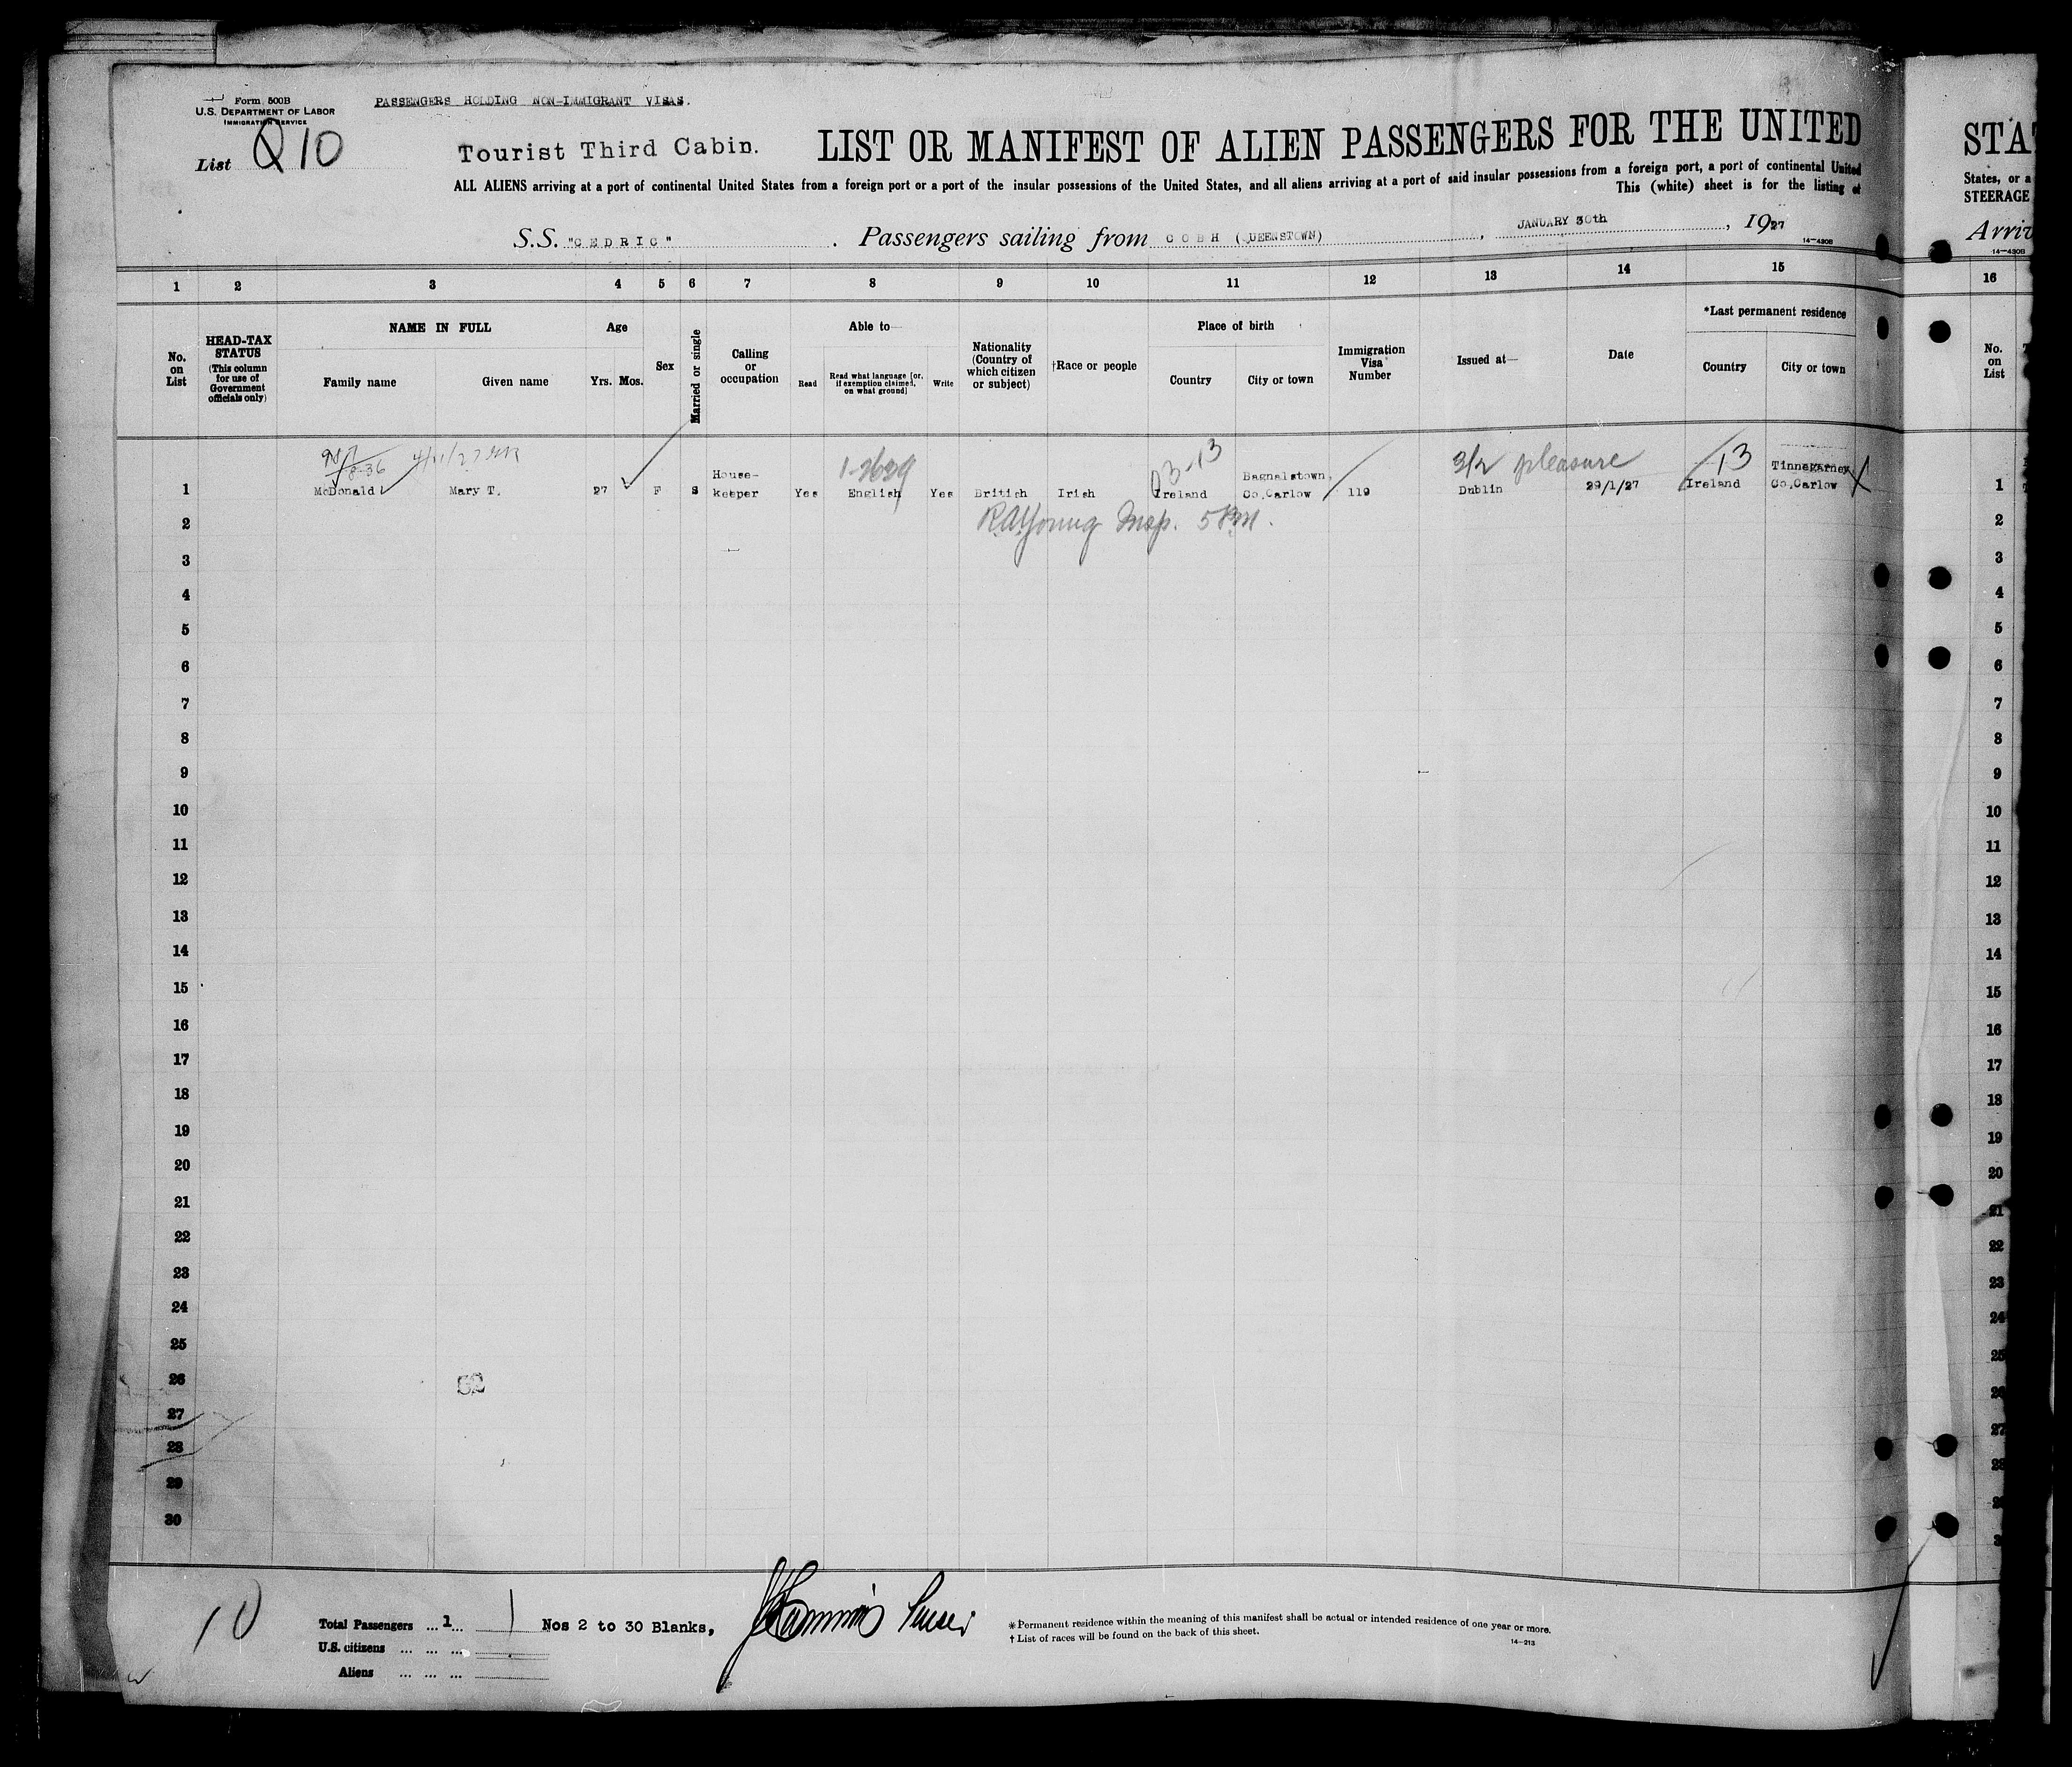 Form 500B
U.S. DEPARTMENT OF LABOR
IMMIGRATION SERVICE
PASSENGERS HOLDING NON-IMMIGRANT VISAS.
List Q 10
Tourist Third Cabin.
LIST OR MANIFEST OF ALIEN PASSENGERS FOR THE UNITED
ALL ALIENS arriving at a port of continental United States from a foreign port or a port of the insular possessions of the United States, and all aliens arriving at a port of said insular possessions from a foreign port, a port of continental United
This (white) sheet is for the listing of
S.S. "CEDRIC". Passengers sailing from COBH (QUEENSTOWN), JANUARY 30th, 1927
14-430B
1 2 3 4 5 6 7 8 9 10 11 12 13 14 15
No. on List
HEAD-TAX STATUS (This column for use of Government officials only)
NAME IN FULL
Family name Given name
Age
Yrs. Mos.
Sex
Married or single
Calling or occupation
Able to—
Read
Read what language [or, if exemption claimed, on what ground]
Write
Nationality (Country of which citizen or subject)
†Race or people
Place of birth
Country City or town
Immigration Visa Number
Issued at—
Date
*Last permanent residence
Country City or town
1-2639 03-13 3/2 pleasure 13
1 McDonald Mary T. 27 F S House-keeper Yes English Yes British Irish Ireland Bagnalstown, Co.Carlow 119 Dublin 29/1/27 Ireland Tinnegarney, Co.Carlow
RAYoung Insp. 5 PM.
2
3
4
5
6
7
8
9
10
11
12
13
14
15
16
17
18
19
20
21
22
23
24
25
26
27
28
29
30
10
Total Passengers ... 1 ... 1 Nos 2 to 30 Blanks,
U.S. citizens ... ... ...
Aliens ... ... ...
Purser
* Permanent residence within the meaning of this manifest shall be actual or intended residence of one year or more.
† List of races will be found on the back of this sheet.
14-213
STA
States, or a
STEERAGE
Arriv
14-430B
16
No. on List
1
2
3
4
5
6
7
8
9
10
11
12
13
14
15
16
17
18
19
20
21
22
23
24
25
26
27
28